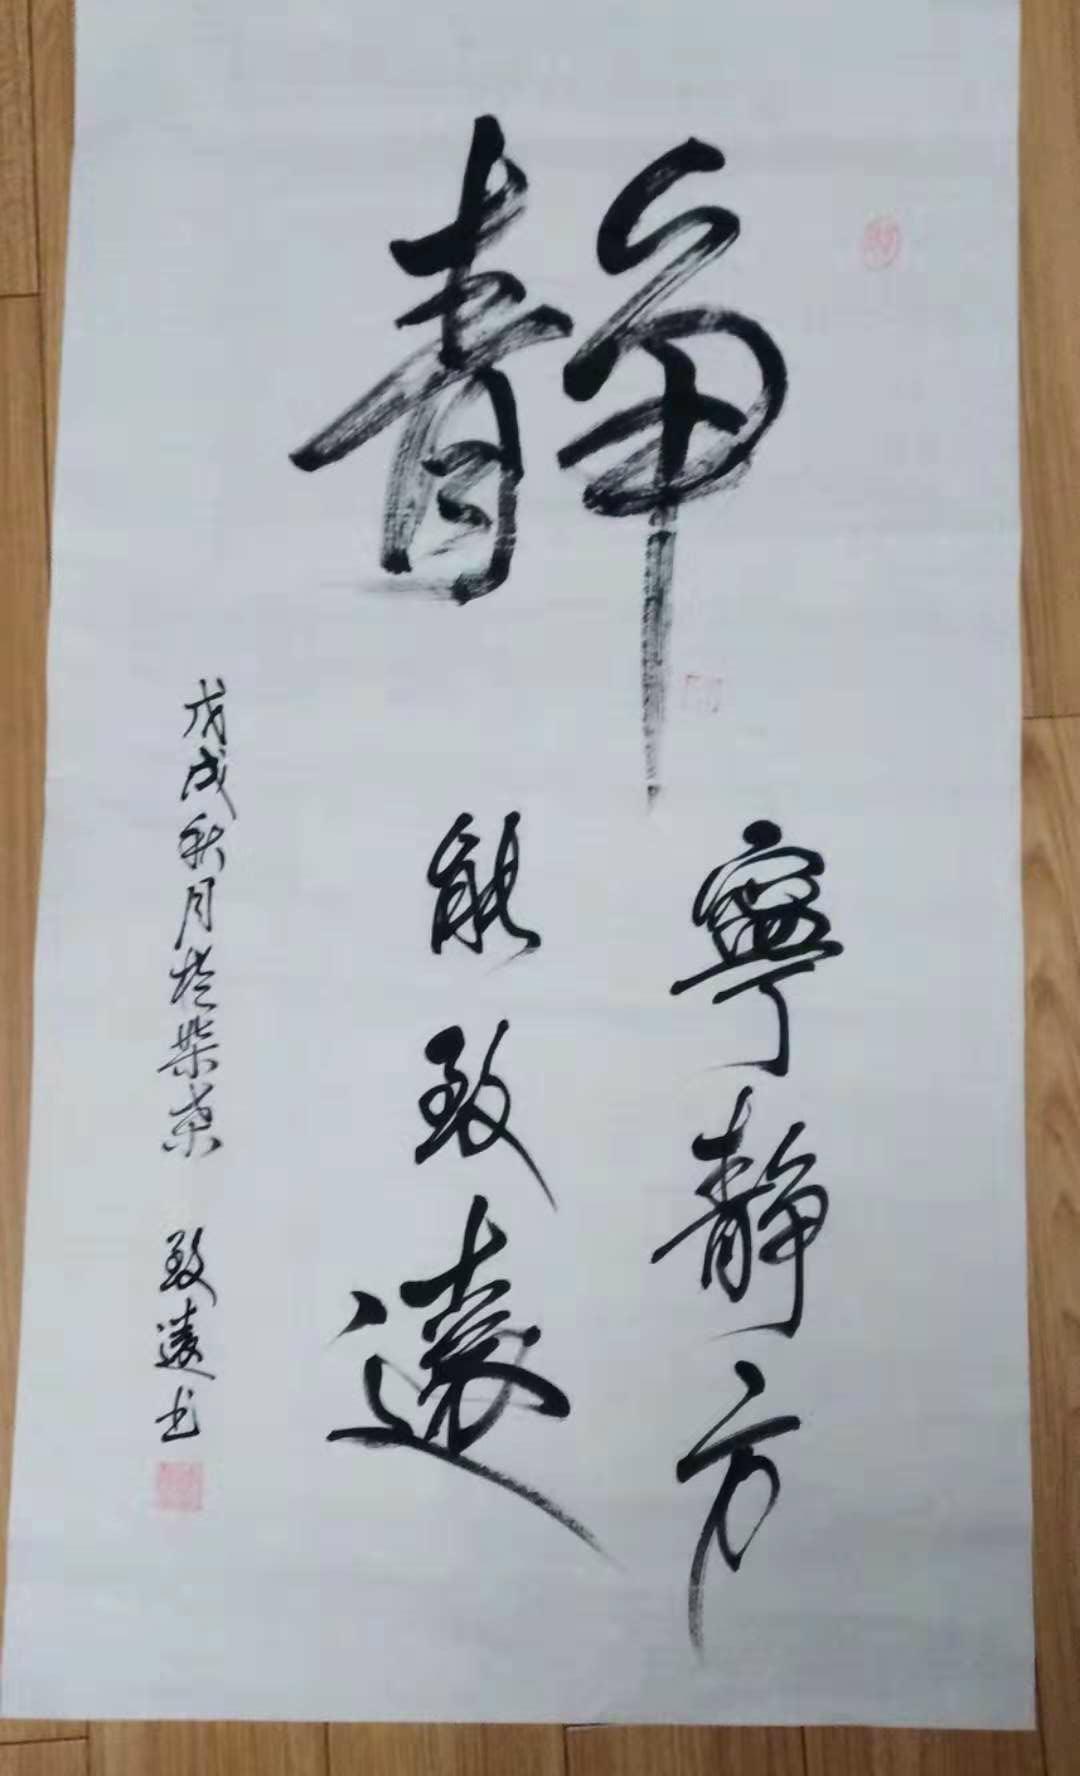 静
寧靜方
能致遠
戊戌秋月於柴桑 致遠书